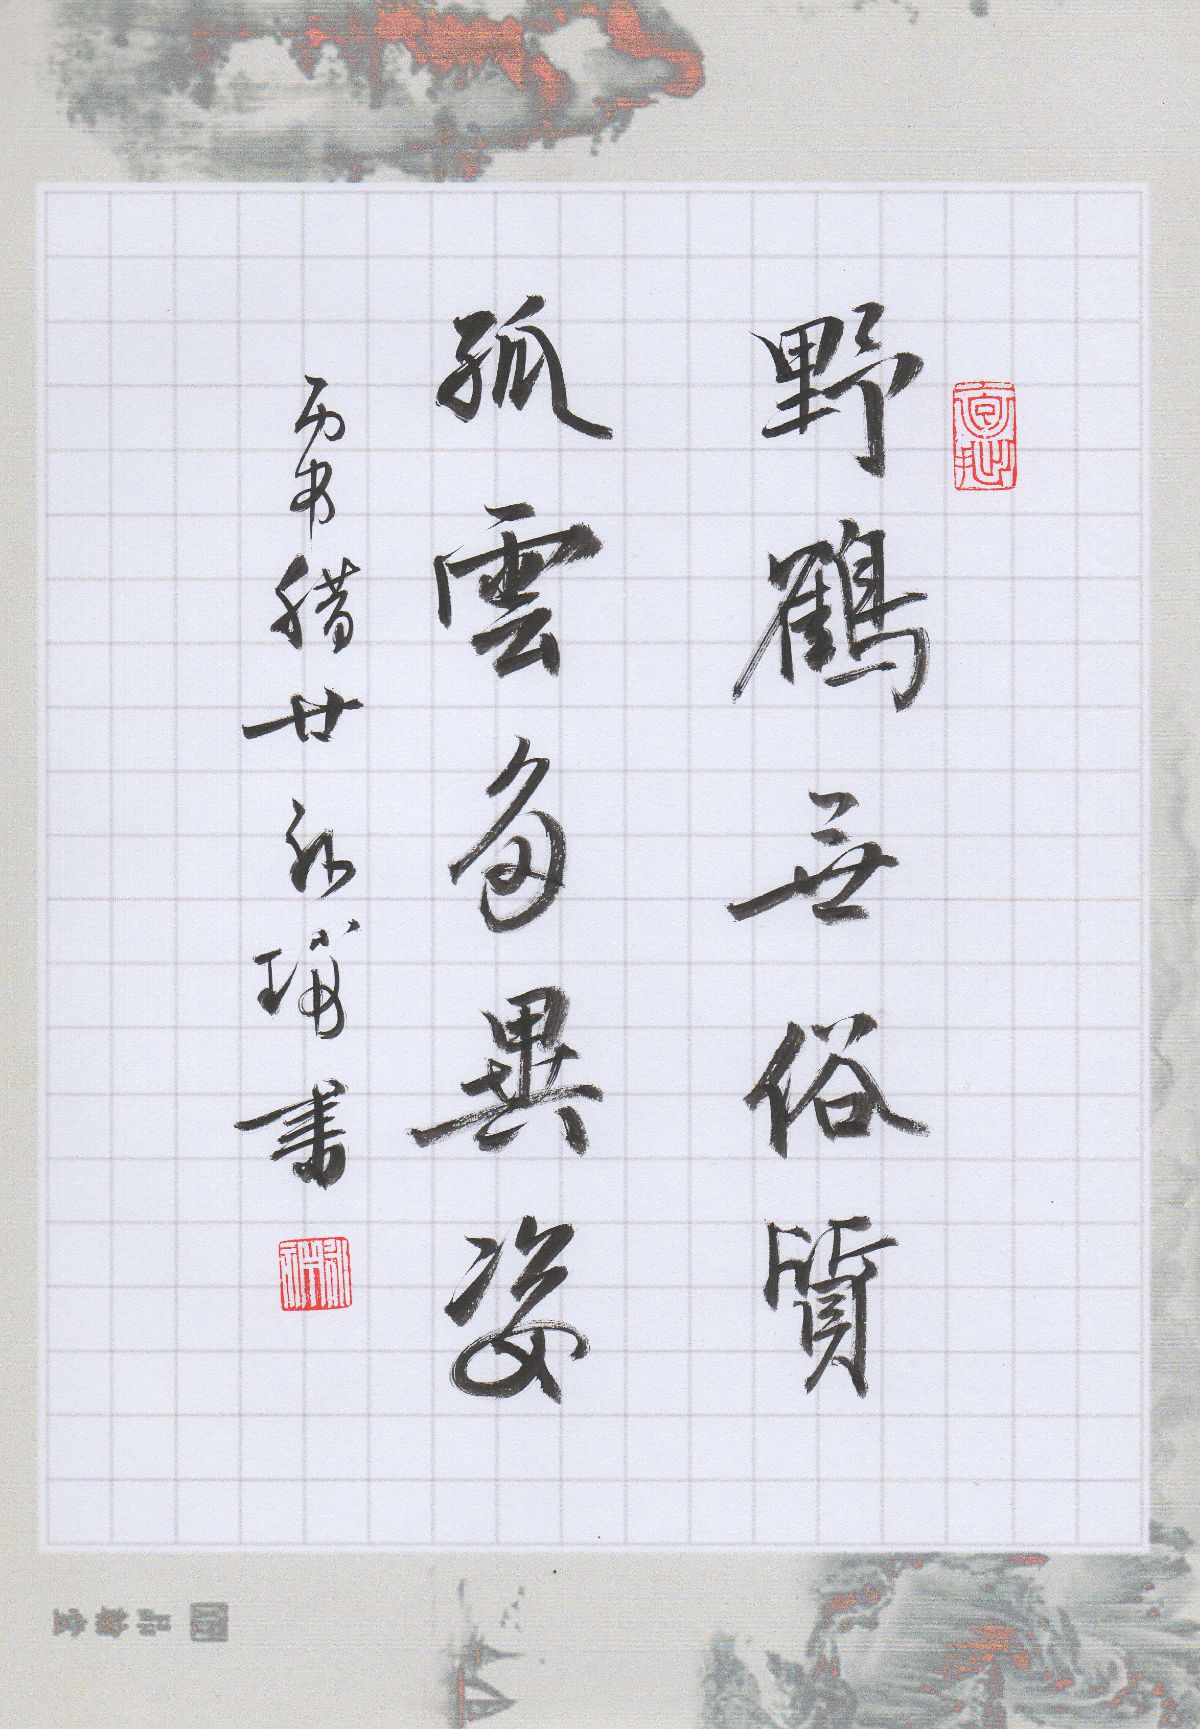 野鶴無俗質
孤雲多異姿
丙申腊廿永琳書